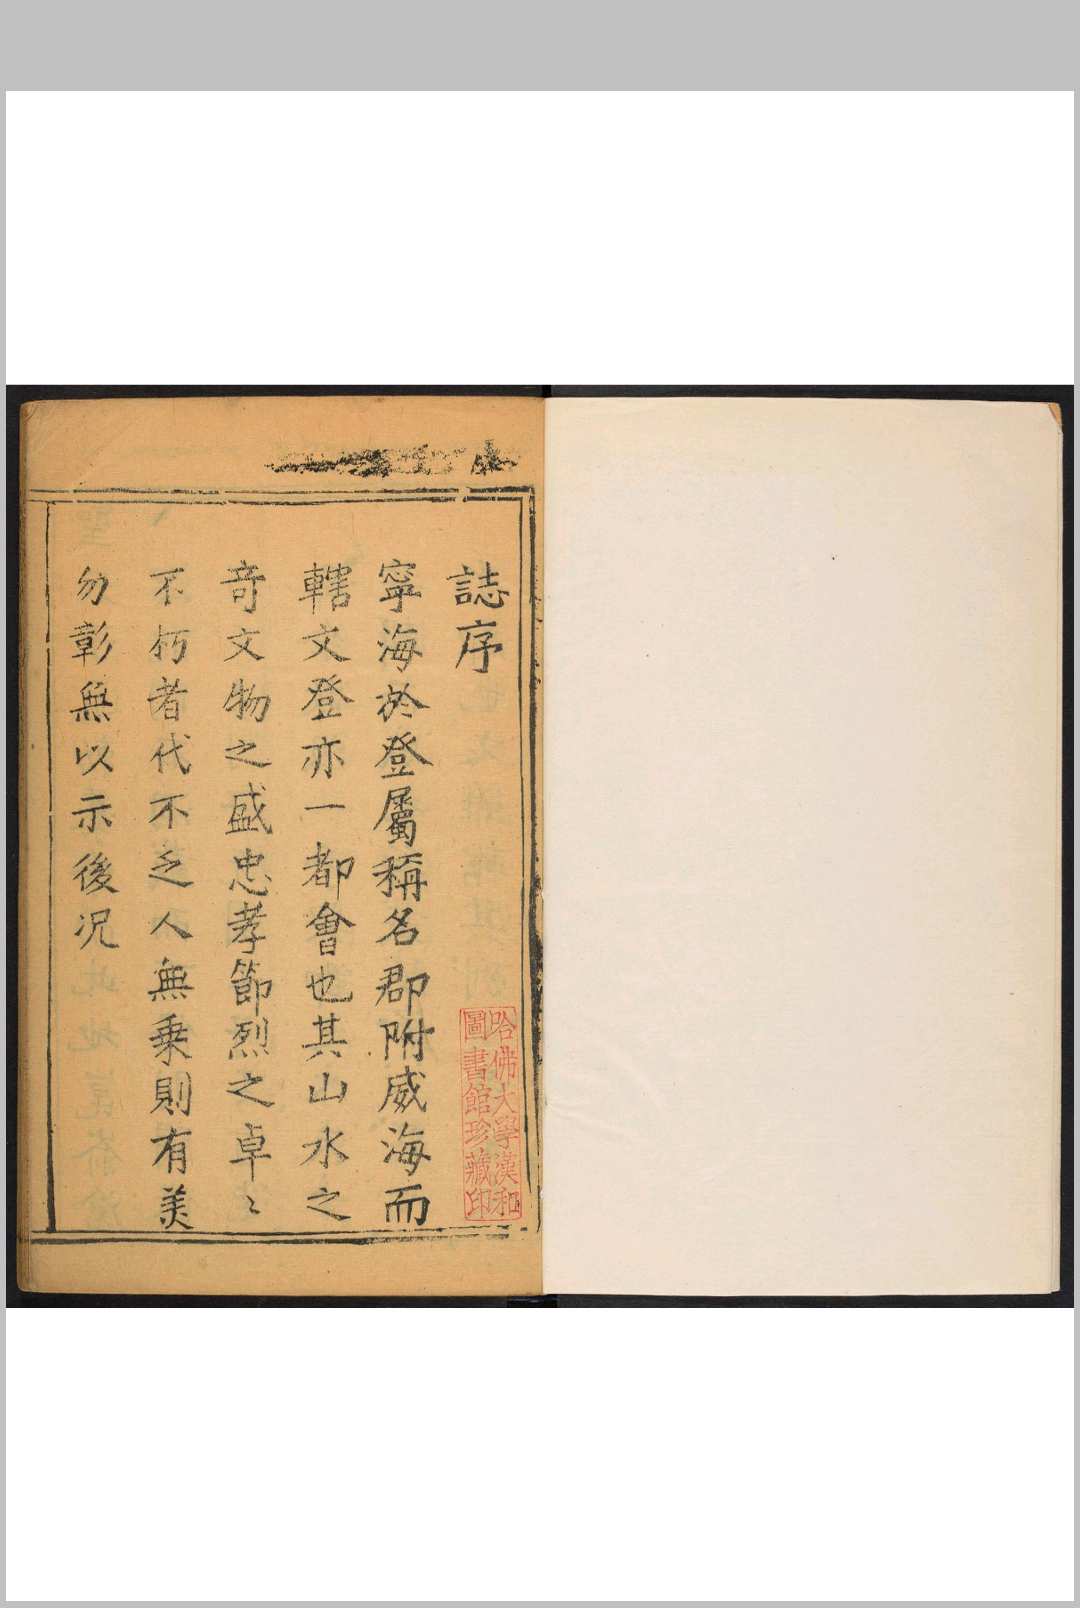 誌序
寧海於登屬稱名郡附威海而
轄文登亦一都會也其山水之
奇文物之盛忠孝節烈之卓〻
不朽者代不乏人無乘則有美
勿彰無以示後況
哈佛大學漢和
圖書館珍藏印